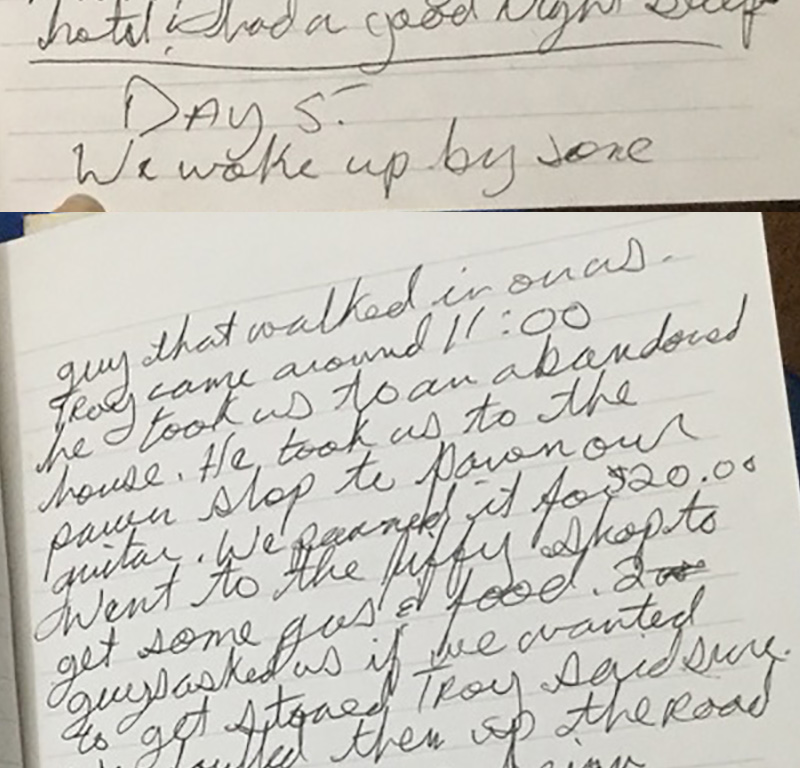 hotel! I had a good Night Sleep
DAY 5-
We woke up by some
guy that walked in on us.
Troy came around 11:00
he took us to an abandoned
house. He took us to the
pawn shop to pawn our
guitar. We pawned it for $20.00
Went to the Jiffy Shop to
get some gas & food. 2
guys asked us if we wanted
to get stoned Troy said sure.
them up the Road